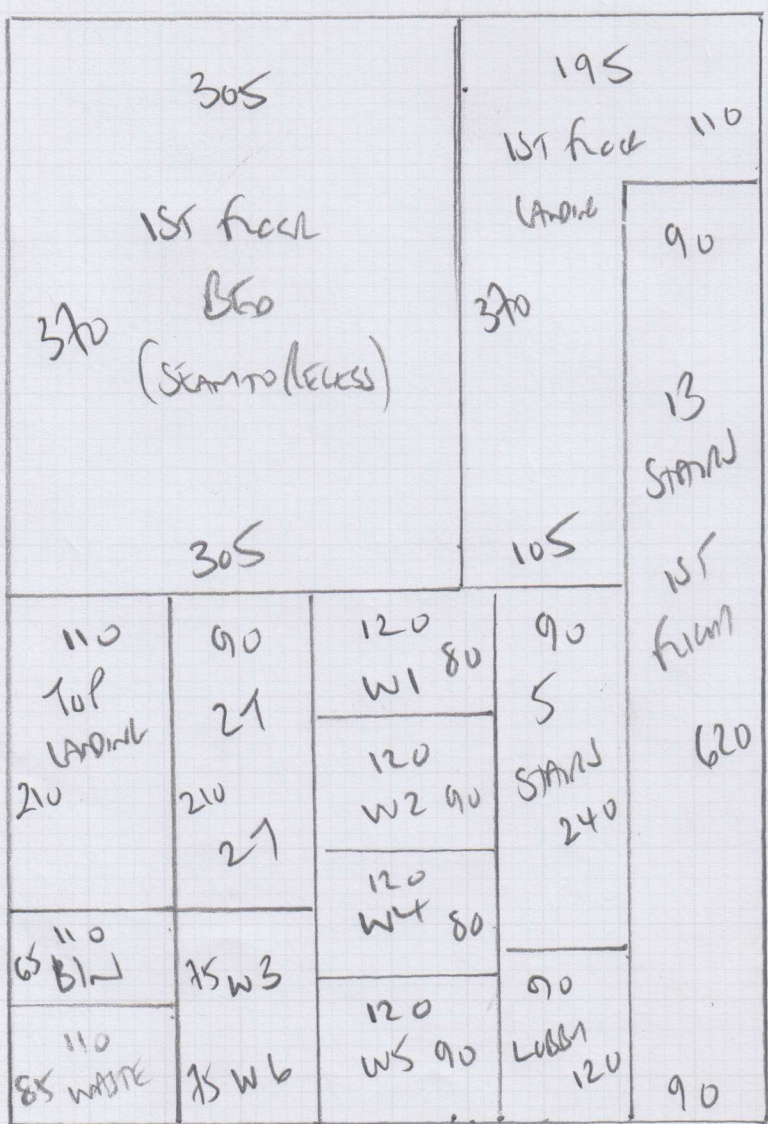 305
1ST FLOOR
BED
(SEAM TO RECESS)
370
305
195
1ST FLOOR
LANDING
110
370
105
90
13
STAIRS
1ST
FLIGHT
620
90
110
TOP
LANDING
210
90
21
210
21
120
W1 80
120
W2 90
120
W4 80
120
W5 90
90
5
STAIRS
240
90
LOBBY
120
110
65 BIN
110
85 WASTE
75 W3
75 W6